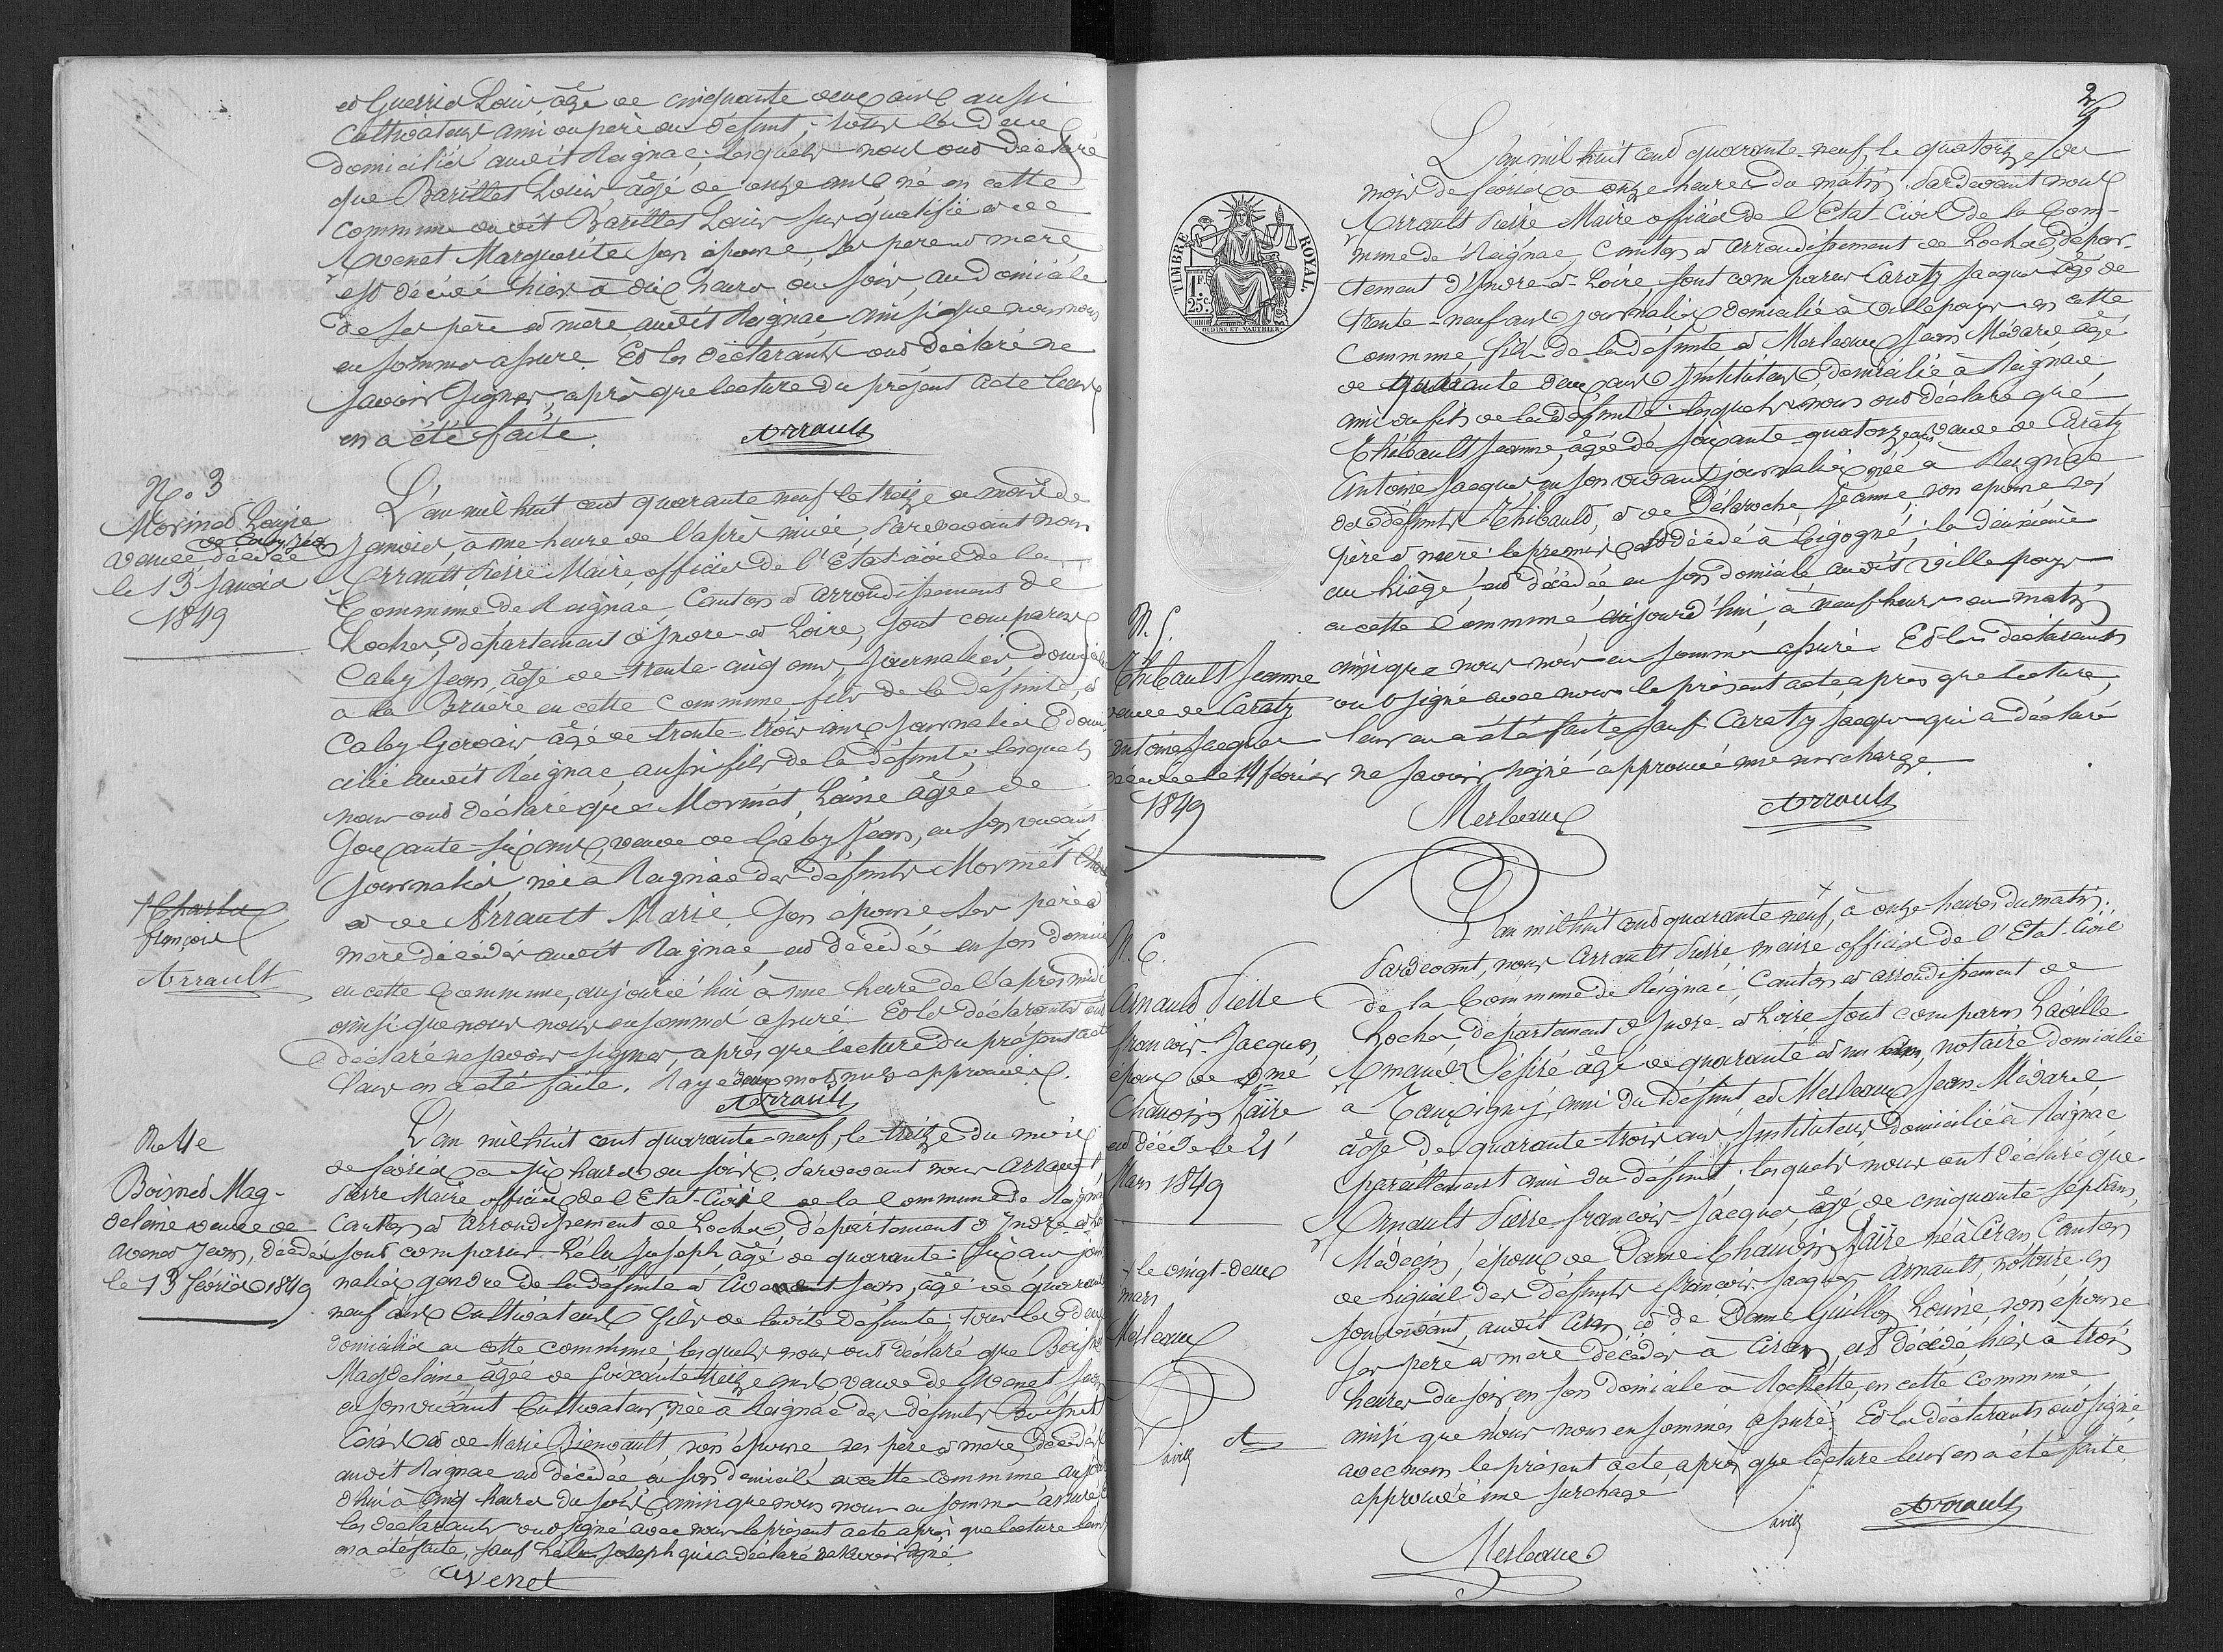 et Guerrier Louis âgé de cinquante deux ans aussi
Cultivateur ami du père du défunt, tous les deux
domiciliés audit Reignac; lesquels nous ont déclaré
que Barilles Louis âgé de onze ans né en cette
Commune dudit Barilles Louis sus qualifié et de
Avenet Marguerite son épouse, ses père et mère
est décédé hier à dix heures du soir, au domicile
de ses père et mère audit Reignac ainsi que nous nous
en sommes assuré. Et les déclarants ont déclaré ne
savoir signer, après que lecture du présent acte leur
en a été faite.
Arrault
N.o 3
Morinet Louise
veuve de Caby Jean
décédée
le 13 Janvier
1849
L'an mil huit cent quarante neuf le treize du mois de
Janvier, à une heure de l'après midi, Pardevant nous
Arrault Pierre Maire, officier de l'Etat civil de la
Commune de Reignac, Canton et arrondissement de
Loches, département d'Indre et Loire, sont comparus
Caby Jean, âgé de trente-cinq ans, Journalier, domicilié
à la Bruère en cette Commune, fils de la défunte, et
Caby Gervais âgé de trente-trois ans Journalier domi
cilié audit Reignac, aussi fils de la défunte, lesquels
nous ont déclaré que Morinet, Louise âgée de
Soixante-six ans, veuve de Caby Jean, en son vivant
Journalier, née à Reignac des défunts Morinet Charles
et de Arrault Marie, son épouse ses père et
mère décédés audit Reignac, est décédée en son domicile
en cette Commune, aujourd'hui à une heure de l'après midi
ainsi que nous nous en sommes assuré. Et les déclarants ont
déclaré ne savoir signer, après que lecture du présent acte
leur en a été faite. Rayé deux mots nuls approuvés.
Arrault
+ Charles
françois
Arrault
No 4
Boisnet Mag-
delaine veuve de
Avenet Jean, décédée
le 13 février 1849
L'an mil huit cent quarante-neuf, le treize du mois
de février à six heures du soir. Pardevant nous Arrault,
Pierre Maire officier de l'Etat-Civil de la Commune de Reignac
Canton et arrondissement de Loches, département d'Indre et Loire
sont comparus Lélu Joseph, âgé de quarante-six ans jour
nalier gendre de la défunte et Avenet Jean, âgé de quarante
neuf ans Cultivateur fils de ladite défunte; tous les deux
domiciliés en cette commune; lesquels nous ont déclaré que Boisnet
Magdelaine, âgée de soixante treize ans, veuve de Avenet Jean
en son vivant Cultivateur, née à Reignac des défunts Boisnet
et de Marie Bienvault, son épouse ses père et mère, décédés
audit Reignac est décédée en son domicile en cette commune aujour
d'hui à cinq heures du soir, ainsi que nous nous en sommes assuré
les déclarants ont signé avec nous le présent acte après que lecture leur
en a été faite, sauf Lélu Joseph qui a déclaré ne savoir signé.
Avenet
2
TIMBRE ROYAL.
1F. 25c.
OUDINE ET VAUTHIER
L'an mil huit cent quarante-neuf, le quatorze du
mois de février à onze heures du matin. Pardevant nous
Arrault Pierre Maire officier de l'Etat-Civil de la Com-
mune de Reignac, Canton et arrondissement de Loches, dépar-
tement d'Indre et-Loire, sont comparus Caraty Jacques âgé de
trente-neuf ans journalier domicilié à Villepays en cette
commune fils de la défunte et Merleaux Jean Médard âgé
de quarante deux ans Instituteur, domicilié à Reignac,
ami du fils de la défunte; lesquels nous ont déclaré que
Thibault Jeanne, âgée de soixante-quatorze ans, veuve de Caraty
Antoine Jacques en son vivant journalier née à Reignac
des défunts Thibault, et de Délaroche, Jeanne, son épouse ses
père et mère: le premier est décédé à Cigogné, la deuxième
au Liège, est décédée en son domicile audit Villepays
en cette Commune aujourd'hui, à neuf heures du matin
ainsi que nous nous en sommes assuré. Et les déclarants
ont signé avec nous le présent acte après que lecture,
leur en a été faite sauf Caraty Jacques qui a déclaré
ne savoir signé approuvé une surcharge.
Merleaux
Arrault
N. 5.
Thibault Jeanne
veuve de Caraty
Antoine Jacques
décédée le 14 février
1849
N. 6.
Arnault Pierre
françois-Jacques,
époux de Dme
Chauvin Zaïre
est décédé le 21
Mars 1849
+ le vingt-deux
mars
Merleaux
L'an mil huit cent quarante neuf, + à onze heures du matin.
Pardevant, nous Arrault Pierre maire officier de l'Etat-Civil
de la Commune de Reignac, Canton et arrondissement de
Loches, département d'Indre-et Loire sont comparus
Amand Désiré âgé de quarante et un ans, notaire domicilié
à Tauxigny, ami du défunt et Merleaux Jean-Médard
âgé de quarante-trois ans, Instituteur domicilié à Reignac
pareillement ami du défunt; lesquels nous ont déclaré que
Arnault Pierre-françois-Jacques, âgé de cinquante-sept ans,
Médecin, époux de Dame Chauvin Zaïre né à Ciran Canton
de Ligueil des défunts françois-Jacques Arnault, notaire en
son vivant, audit Ciran et de Dame Guillon Louise, son épouse
ses père et mère décédés à Ciran, est décédé, hier à trois
heures du soir, en son domicile à Rochette, en cette commune,
ainsi que nous nous en sommes assuré. Et les déclarants ont signé
avec nous le présent acte, après que lecture leur en a été faite.
approuvé une surchage
Arrault
Merleaux